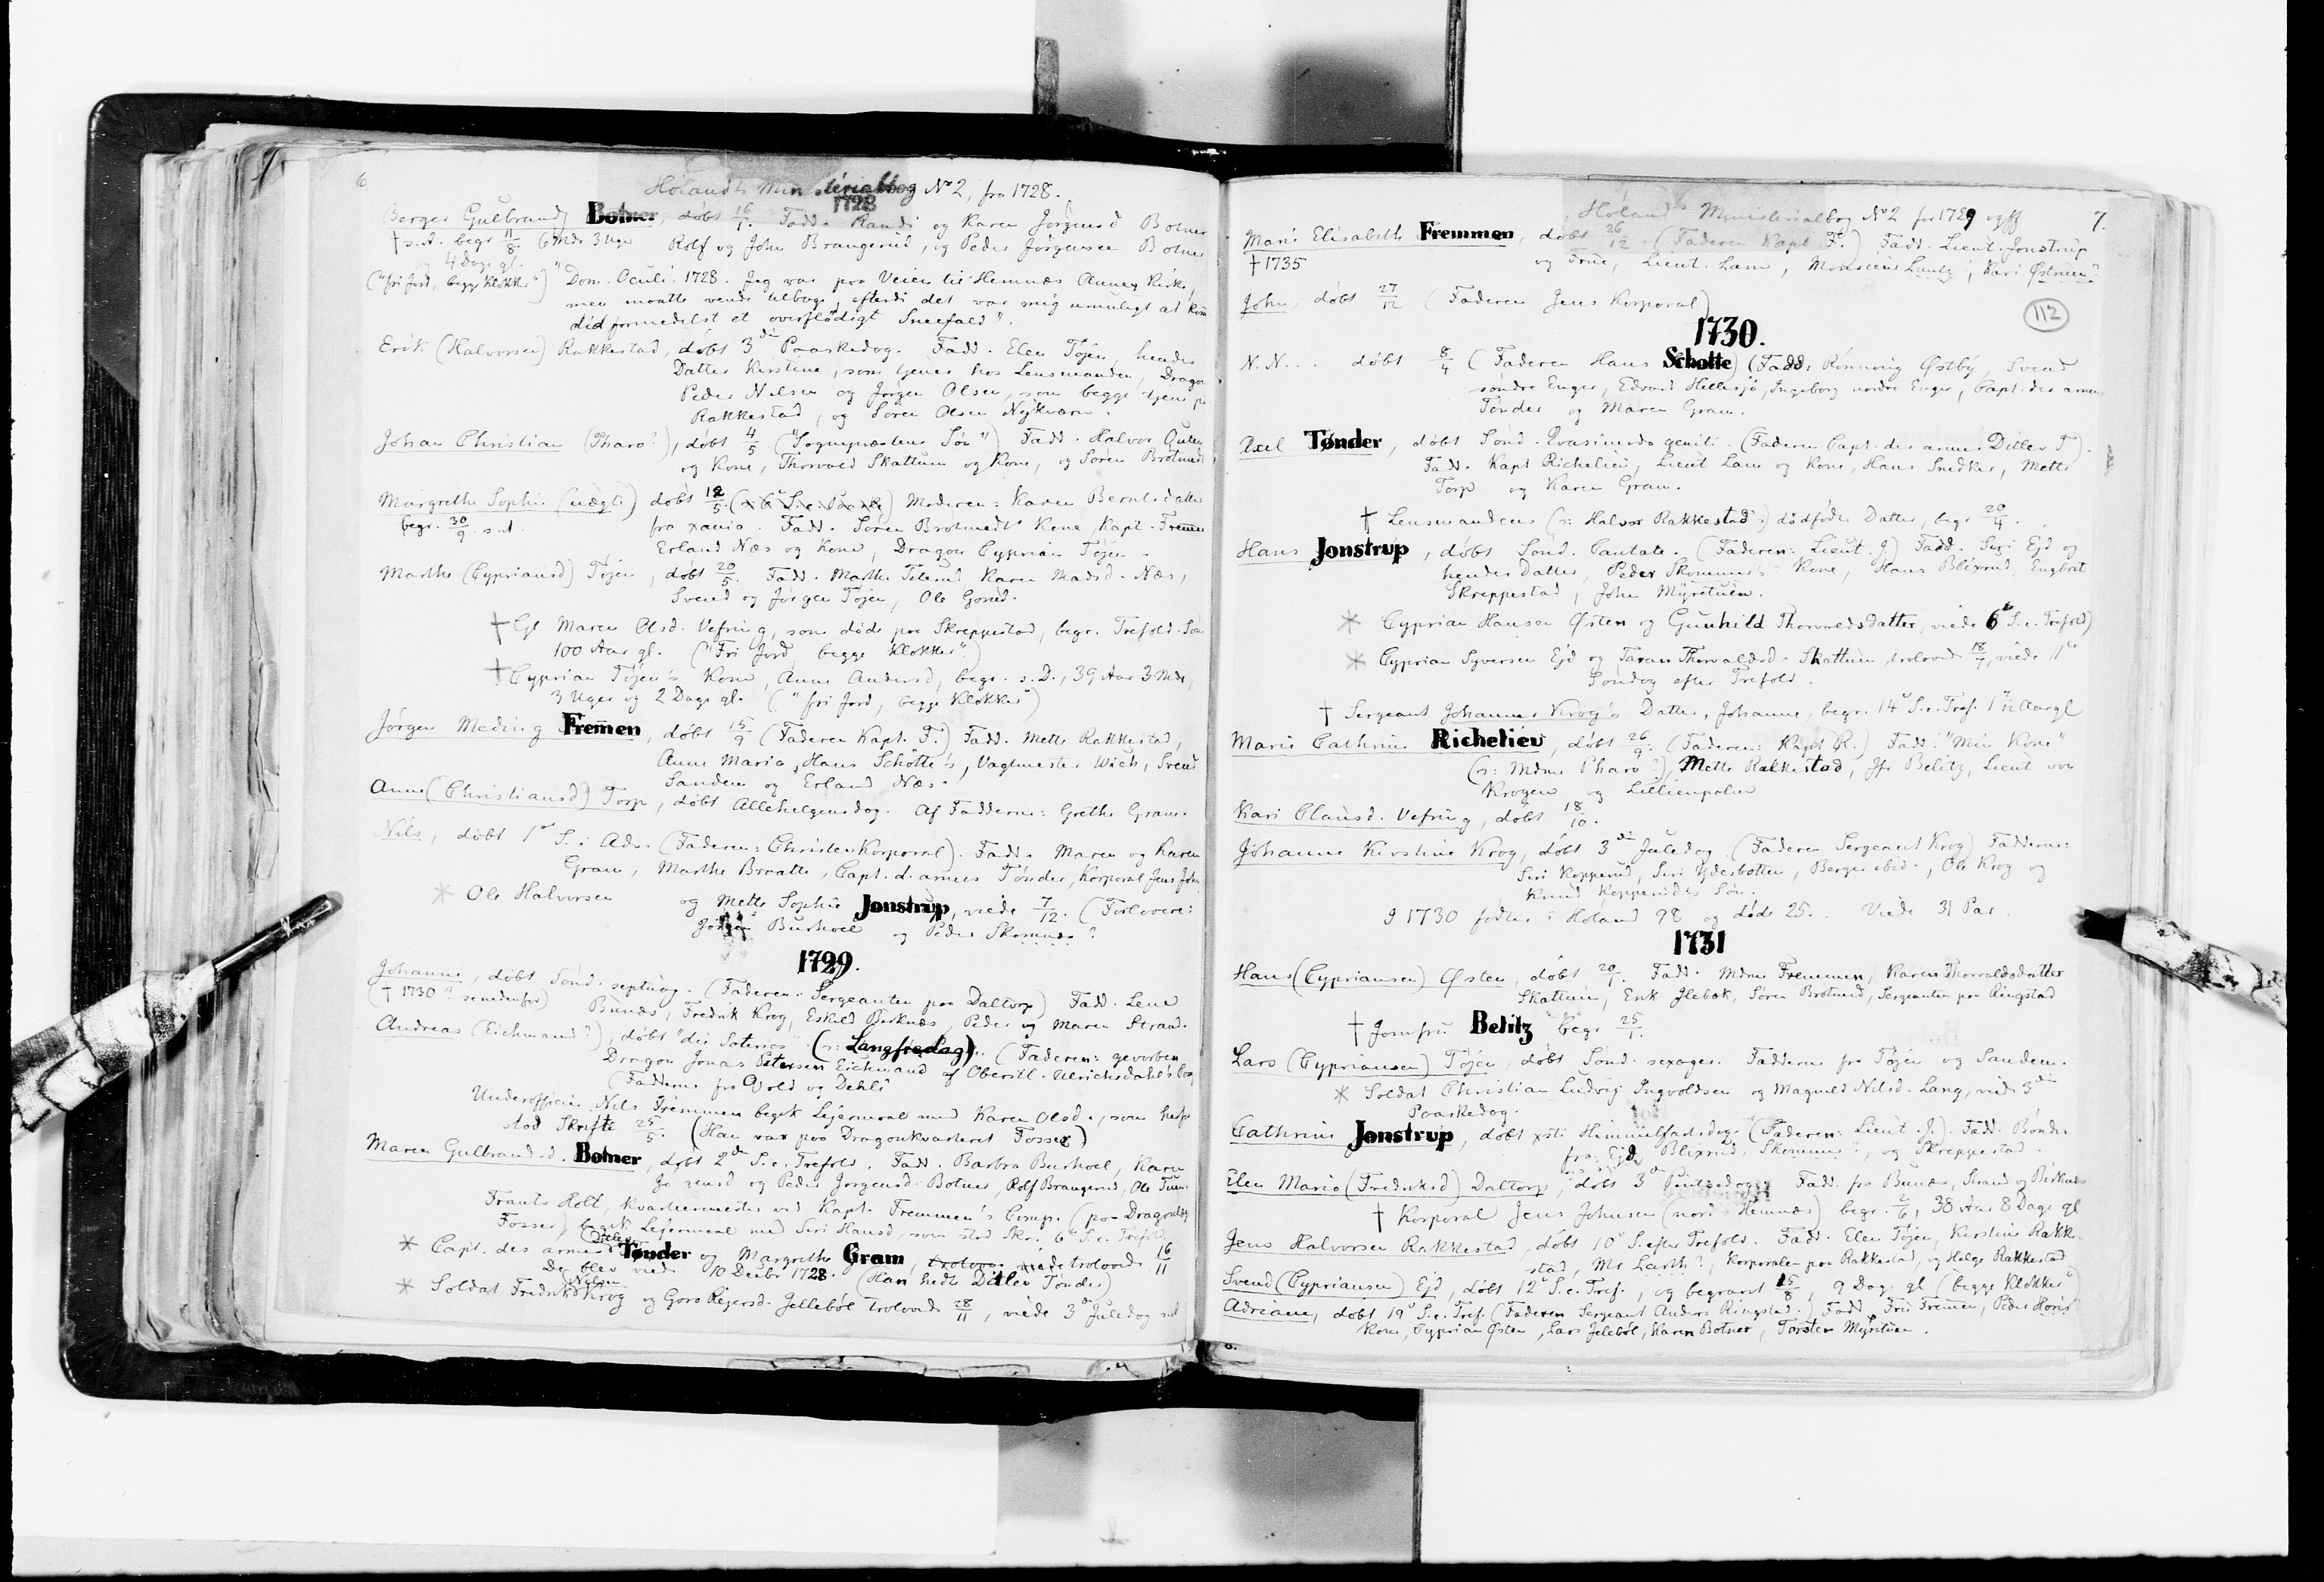 6
Hølands Ministerialbog No 2, fra 1728.
1728
Berger Gulbrands Botner, døbt 16/1. Fadd. Randi og Karen Jørgensd Botner
† s.A. begr 11/8 6 Mdr 3 Uger Rolf og John Brangerud, og Peder Jørgensen Botner
og 4 Dage gl.
("fri Jord, begge Klokker") "Dom. Oculi. 1728. Jeg var paa Veien til Hemnæs Annex Kirke,
men maatte vende tilbage, efterdi det var mig umuligt at kom
did formedelst et overflødigt Sneefald".
Erik (Halvorsen) Rakkestad, døbt 3die Paaskedag. Fadd. Elen Tøjen, hendes
Datter Kirstine, som tjener hos Lensmanden, Dragon
Peder Nilsen og Jørgen Olsen, som begge tjene pa
Rakkestad, og Søren Olsen Nejkværn.
Johan Christian (Pharo?), døbt 4/5 ("Sognepræstens Søn") Fadd. Halvor
og Kone, Thorvald Skattum og Kone, og Søren Brotned
Margrethe Sophie (uægte) døbt 12/5 Moderen: Karen Berntsdatter
begr. 30/9 s.A. fra xania. Fadd. Søren Brotnedt Kone, Kapt. Fremen
Erland Næs og Kone, Dragon Cyprian Tøjen.
Marthe (Cypriansd) Tøjen, døbt 20/5. Fadd. Marthe Toterud Karen Madsd. Næs,
Svend og Jørgen Tøjen, Ole Gorud.
† Gl Maren Olsd. Vefring, som døde paa Skreppestad, begr. Trefold. Søn
100 Aar gl. ("Fri Jord, begge Klokker")
† Cyprian Tøjen's Kone, Anne Andersd, begr. s.D., 39 Aar 3 Mdr,
3 Uger og 2 Dage gl. ("fri Jord, begge Klokker")
Jørgen Meding Fremen, døbt 15/9 (Faderen Kapt. F.) Fadd. Mette Rakkestad,
Anne Maria, Hans Schøtte's, Vagtmester Wich, Svend
Sanden og Erland Næs.
Anne (Christiansd) Torp, døbt Allehelgensdag. Af Fadderne: Grethe Gram.
Nils, døbt 1ste S. i Adv. (Faderen: Christen Korporal). Fadd. Maren og Karen
Gram, Marthe Braatte, Capt. d. armes Tønder, Korporal Jens John
* Ole Halvorsen og Mette Sophie Jonstrup, viede 7/12. (Forlovere:
Jørgen Burhoel og Peder Skomnæs?
1729.
Johanne, døbt Sønd. septuag. (Faderen: Sergeanten paa Daltorp) Fadd. Lene
(† 1730? se nedenfor) Bunæs, Fredrik Krog, Eskild Birknæs, Peder og Maren Strand.
Andreas (Eichmand?), døbt "die Soterios" (ɔ: Langfredag). (Faderen: gevorben
Dragon Jonas Petersen Eichmand af Oberstl. Ulrichsdahl's Comp
(Fadderne fra Vold og Dehli
Underofficir Nils Fremmen begik Lejermaal med Karen Olsd., som herfor
stod Skrifte 25/5. (Han var paa Dragonkvarteret Fosser)
Maren Gulbrandsd. Botner, døbt 2den S.e. Trefold. Fadd. Barbra Burhoel, Karen
Jørgensd og Peder Jørgensd. Botner, Rolf Brangerud, Ole Tuen
Frants Holt, Kvarteermester ved Kapt. Fremmen's Comp. (paa Dragonkv
Fosser) begik Lejermaal med Siri Hansd, som stod Skr. 6te S.e. Trefold
* Capt. des armes Ditlev Tønder og Margrethe Gram, trolovede 16/11
De blev viede 10 Decbr 1728. (Han hedte Ditlev Tønder)
* Soldat Fredrik Nilsen Krog og Goro Rejersd. Jellebøl trolovede 28/11, viede 3die Juledag s.A
Hølands Ministerialbog No 2 for 1729 og ff
7.
Marie Elisabeth Fremmen, døbt 26/12. (Faderen Kapt F.) Fadd. Lieut. Jonstrup
† 1735 og Frue, Lieut. Lam, Monsieur Lantz?, Kari Østreen?
John, døbt 27/12 (Faderen Jens Korporal)
112
1730.
N.N... døbt 8/4 (Faderen Hans Schøtte) (Fadd: Rønnoug Østby, Svend
søndre Enger, Edvard Hellesjø, Ingeborg nordre Enger, Capt. des armes
Tønder og Maren Gram.
Axel Tønder, døbt Sønd. Qvasimodo geniti. (Faderen Capt. des armes Ditlev T).
Fadd. Kapt Richelieu, Lieut Lam og Kone, Hans Snedker, Mette
Torp og Karen Gram.
† Lensmandens (ɔ: Halvor Rakkestad's) dødfødte Datter, begr 20/4.
Hans Jonstrup, døbt Sønd. Cantate. (Faderen: Lieut. J.) Fadd. Siri Ejd og
hendes Datter, Peder Skommer's? Kone, Hans Blixrud, Engbret
Skreppestad, John Myretuen.
* Cyprian Hansen Østen og Gunhild Thorvaldsdatter, viede 6te S.e. Trefold)
* Cyprian Syversen Ejd og Taran Thorvaldsd. Skattum, trolovede 18/7, viede 11te
Søndag efter Trefold.
† Sergeant Johannes Krog's Datter, Johanne, begr. 14de S.e. Tref. 1 7/12 Aar gl
Marie Cathrine Richelieu, døbt 26/9. (Faderen: Kapt R.) Fadd: "Min Kone"
(ɔ: Mdme Pharo?), Mette Rakkestad, Jfr Belitz, Lieut von
Krogen og Lillienpalm
Kari Clausd. Vefring, døbt 18/10.
Johanne Kirstine Krog, døbt 3die Juledag (Faderen Sergeant Krog) Fadderne:
Siri Kopperud, Siri Ydesbotten, Berger ibid., Ole Krog og
Knud Kopperud's Søn.
I 1730 fødtes i Høland 98 og døde 25. Viede 31 Par.
1731
Hans (Cypriansen) Østen, døbt 20/1. Fadd. Mdme Fremmen, Karen Thorvaldsdatter
Skattum, Erik Jlebøk, Søren Brotned, Sergeanten paa Ringstad
† Jomfru Belitz begr 25/1.
Lars (Cypriansen) Tøjen, døbt Sønd. sexages. Fadderne fra Tøjen og Sanden.
* Soldat Christian Ludvig Ingvoldsen og Magnild Nilsd. Lang, viede 3die
Paaskedag.
Cathrine Jonstrup, døbt xsti Himmelfartsdag (Faderen: Lieut. J.). Fadd. Bønder
fra Ejd, Blixrud, Skommer?, og Skreppestad.
Elen Marie (Fredriksd) Daltorp, døbt 3die Pintsedag. Fadd. fra Bunæs, Strand og Birknæs
† Korporal Jens Johnsen (nord Hemnæs) begr. 2/6, 38 Aar 8 Dage gl
Jens Halvorsen Rakkestad, døbt 10de S. efter Trefold. Fadd. Elen Tøjen, Kirstine Rakke
stad, Mr Larth?, Korporalen paa Rakkestad, og Helge Rakkestad
Svend (Cypriansen) Ejd, døbt 12te S.e. Tref., og begravet 15/8, 9 Dage gl (begge Klokker")
Adriane, døbt 19de S.e. Tref. (Faderen Sergeant Anders Ringstad.) Fadd. Fru Fremen, Peder
Kone, Cyprian Østen, Lars Jelebøl, Karen Botner, Torsten Myretuen.